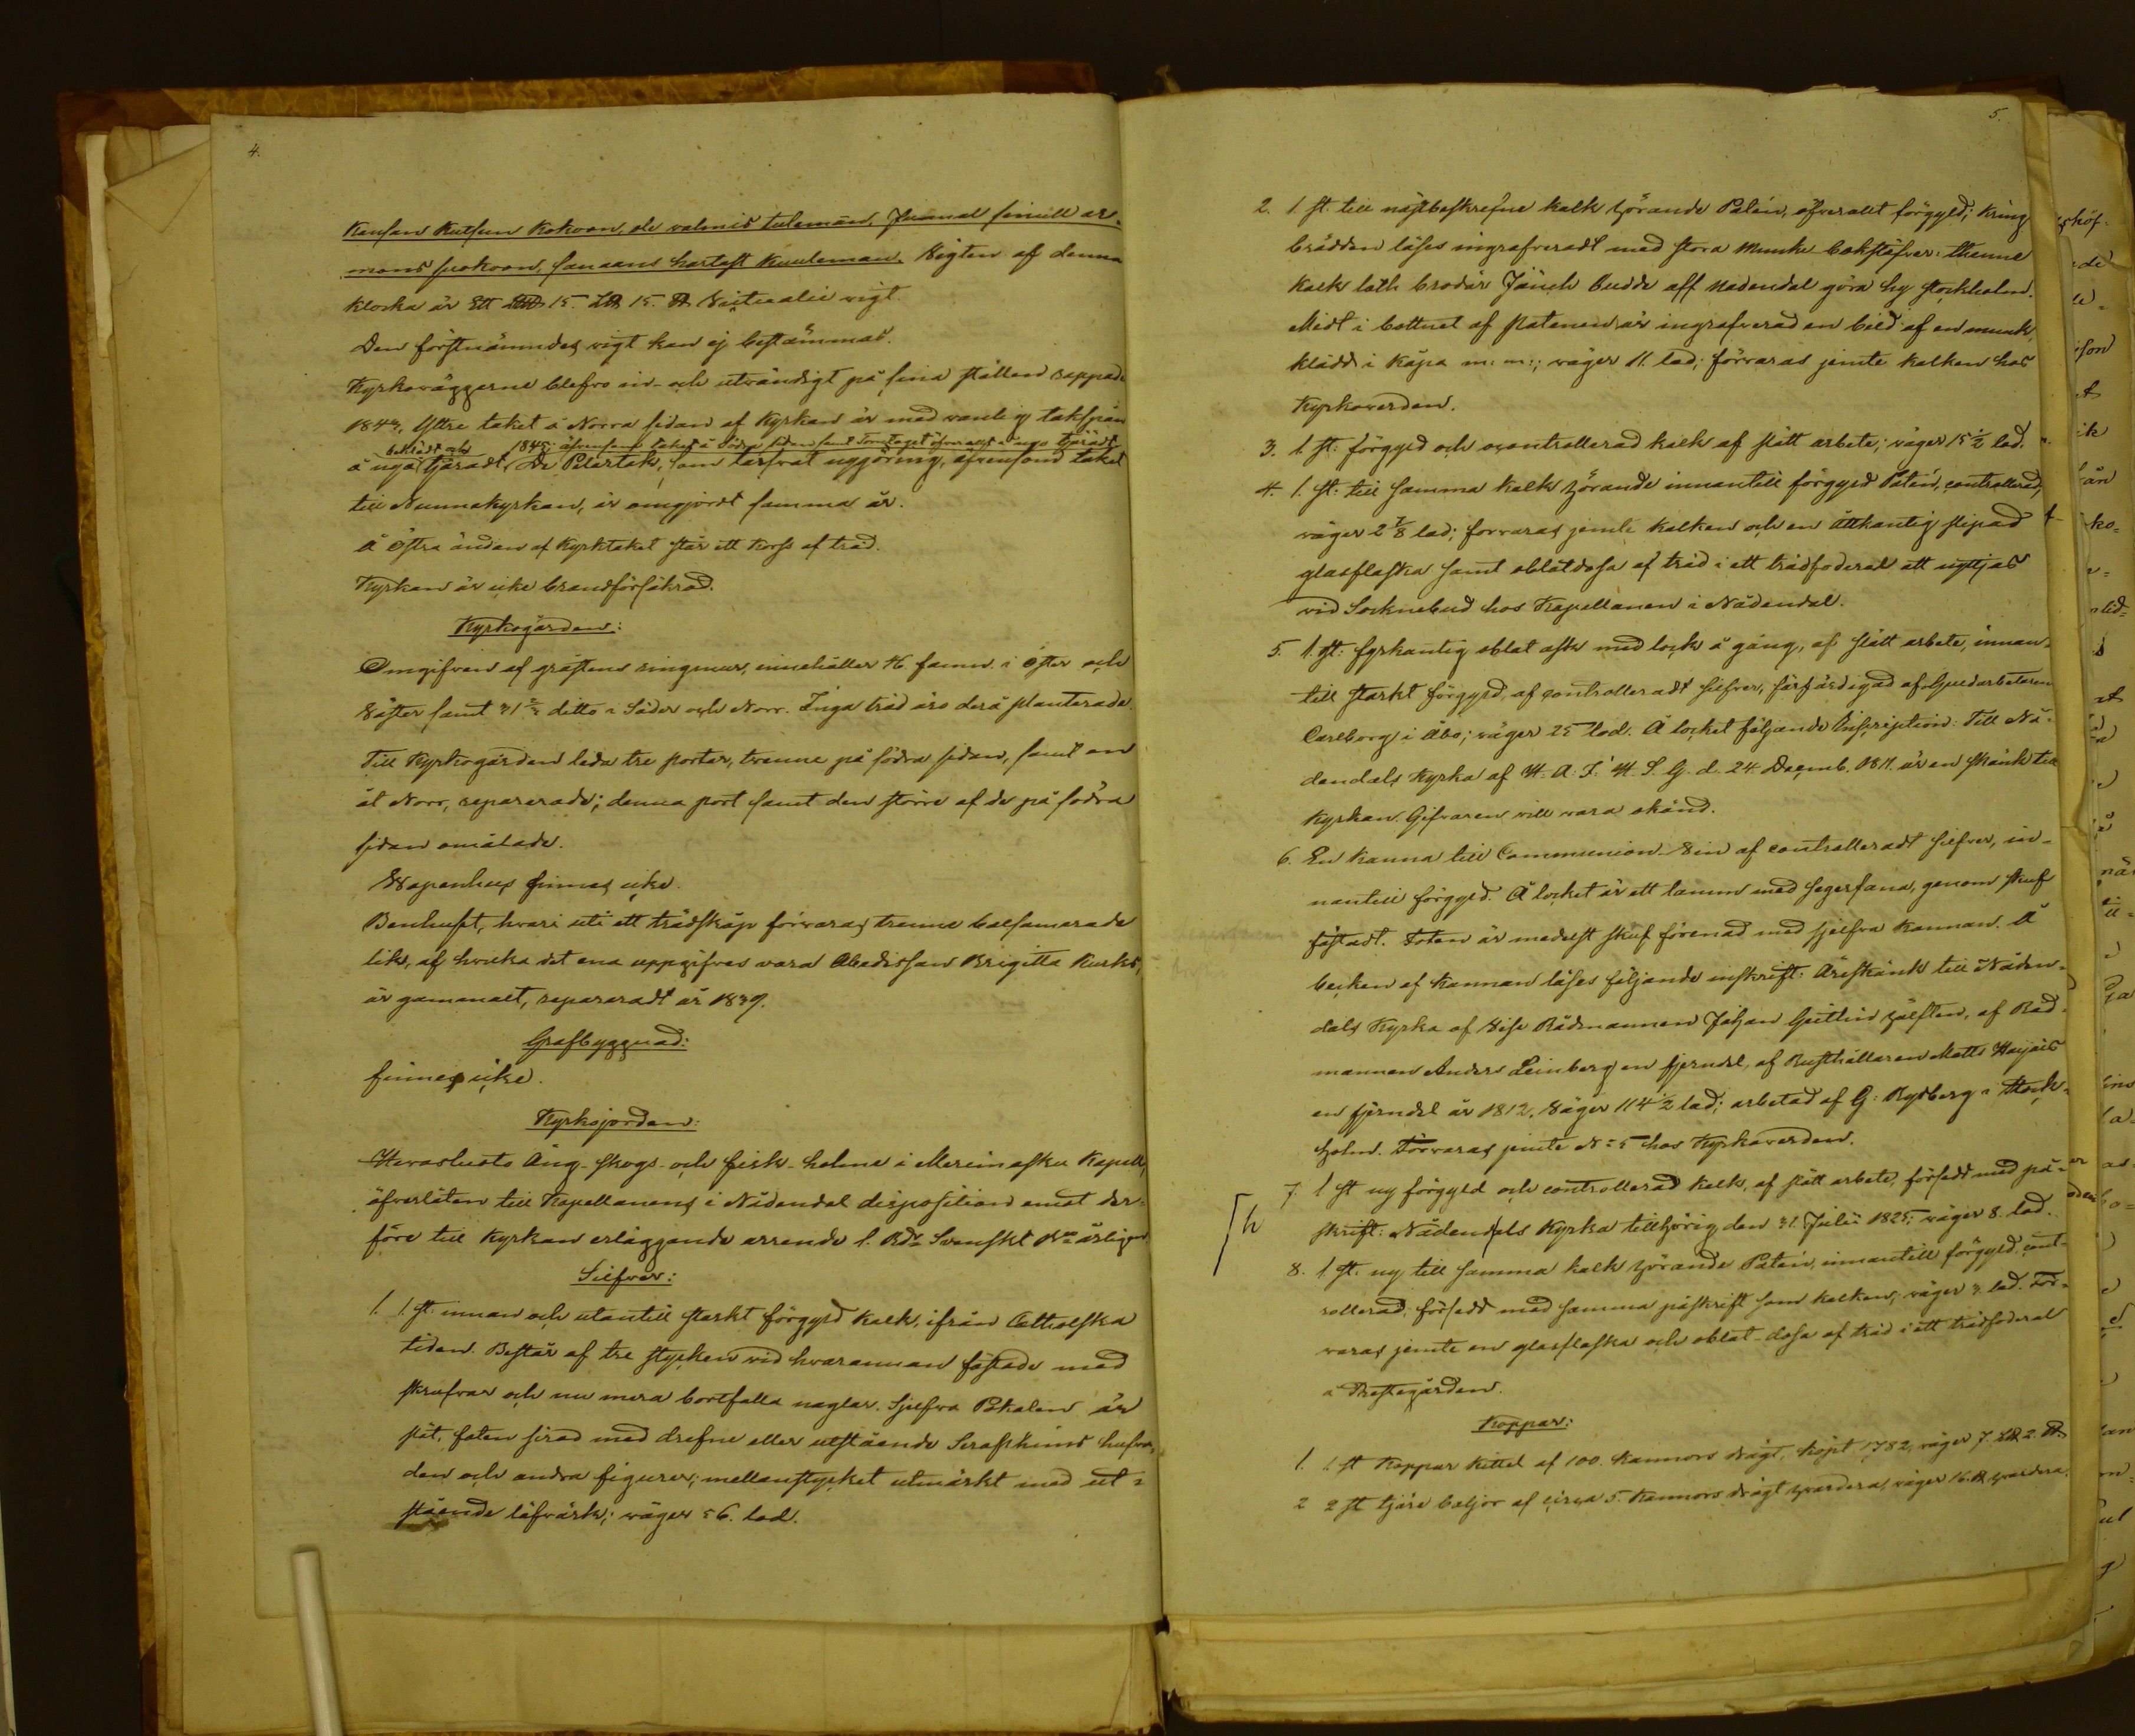 4.
Kansan Kutsun Kokoon, ole valmis tuleman, Jumal sinull ar-
mons suokoon, sanaans hartast kuuleman. Wigten af denna
klocka är Ett 15. L℔ 15. ℔ Victualie vigt.
Den förstnämndes vigt kan ej bestämmas.
Kyrkoväggarne blefvo in- och utvändigt på sina ställen rappade
1843, Yttre taket å Norra sidan af Kyrkan är med vanlig takspån
beklädt och 1845; äfvensom taket å Södra sidan samt Torntaket öfverallt å nyo tjäradt
å nyo tjäradt. De Pelartak, som tarfvat nygöring, äfvensom taket
till Nunnakyrkan, är omgjordt samma år.
Å östra ändan af Kyrktaket står ett Kors af träd.
Kyrkan är icke brandförsäkrad.
Kyrkogården:
Omgifven af gråstens ringmur, innehåller 46 famn. i Öster och
Väster samt 31 2/3 ditto i Söder och Norr. Inga träd äro derå planterade.
Till Kyrkogården leda tre portar, tvenne på södra sidan, samt en
åt Norr, reparerade; denna port samt den större af de på södra
sidan omålade.
Wapenhus finnes icke.
Benhuset, hvari uti ett trädskåp förvaras trenne balsamerade
lik, af hvilka det ena uppgifves vara Abedissan Brigitta Kurks,
är gammalt, repareradt år 1839.
Grafbyggnad:
finnes icke.
Kyrkojorden:
Hevosluoto Äng- skogs- och fisk- holme i Merimasku Kapell,
öfverlåten till Kapellanens i Nådendal disposition emot der-
före till Kyrkan erläggande arrende 1. Rdr Svenskt Bco årligen
Silfver:
1. 1. st: innan och utantill starkt förgyld Kalk, ifrån Catholska
tiden. Består af tre stycken vid hvarannan fästade med
skrufvar och nu mera bortfalla naglar. Sjelfva Pokalen är
slät, foten sirad med drefne eller utstående Seraphims hufvu-
den och andra figurer; mellanstycket utmärkt med ut-
stående löfvärk; väger 56. lod.
5.
2. 1. st. till nästbeskrefne kalk hörande Patén, öfverallt förgyld; kring
brädden läses ingrafveradt med stora Munke-bokstäfver: thenne
kalk läth broder Jönch Budde aff Nadendal göra hy stockholm.
Midt i bottnet af Patenen är ingrafverad en bild af en munk,
klädd i Kåpa m: m:; väger 11. lod; förvaras jemte kalken hos
Kyrkoverden.
3. 1. st: förgyld och ocontrollerad kalk af slätt arbete; väger 15 1/2 lod.
4. 1. st: till samma kalk hörande innantill förgyld Patén, controllerad,
väger 2 7/8 lod; förvaras jemte kalken och en åttkantig slipad
glasflaska samt oblatdosa af träd i ett trädfoderal att nyttjas
vid Socknebud hos Kapellanen i Nådendal.
5. 1. st: fyrkantig oblat ask med lock å gång, af slätt arbete, innan-
till starkt förgyld, af controlleradt silfver, färfärdigad af Guldarbetaren
Carlborg i Åbo; väger 25 lod. Å locket följande Inscription: Till Nå-
dendals Kyrka af H. A. I. H. S. G. d. 24. Decemb. 1811. är en skänk till
Kyrkan. Gifvaren vill vara okänd.
6. En Kanna till Communion-Vin af controlleradt silfver, in-
nantill förgyld. Å locket är ett lamm med segerfana, genom skruf
fästadt. Foten är medelst skruf förenad med sjelfva Kannan. Å
bucken af Kannan läses följande inskrift: Äreskänk till Nåden-
dals Kyrka af Vise Rådmannen Johan Güttlin hälften, af Råd-
mannen Anders Leinberg en fjerndel, af Rusthållaren Matts Haijais
en fjerndel år 1812. Väger 114 1/2 lod; arbetad af G: Rydberg i Stock-
holm. Förvaras jemte No 5 hos Kyrkoverden.
7. 1 st ny förgyld och controllerad kalk, af slätt arbete, försedd med på-
h
skrift: Nådendals Kyrka tillhörig den 31. Julii 1825; väger 8. lod.
8. 1 st: ny till samma kalk hörande Patén, innantill förgyld, cont-
rollerad; försedd med samma påskrift som kalken; väger 3. lod. För-
varas jemte en glasflaska och oblat-dosa af träd i ett trädfoderal
i Prestegården.
Koppar:
1. 1. st Koppar Kittel af 100. Kannors drägt, köpt 1782, väger 7. L℔ 2. ℔.
2 2 st tjäre baljor af circa 5. Kannors drägt hvardera, väger 16. ℔ hvardera.